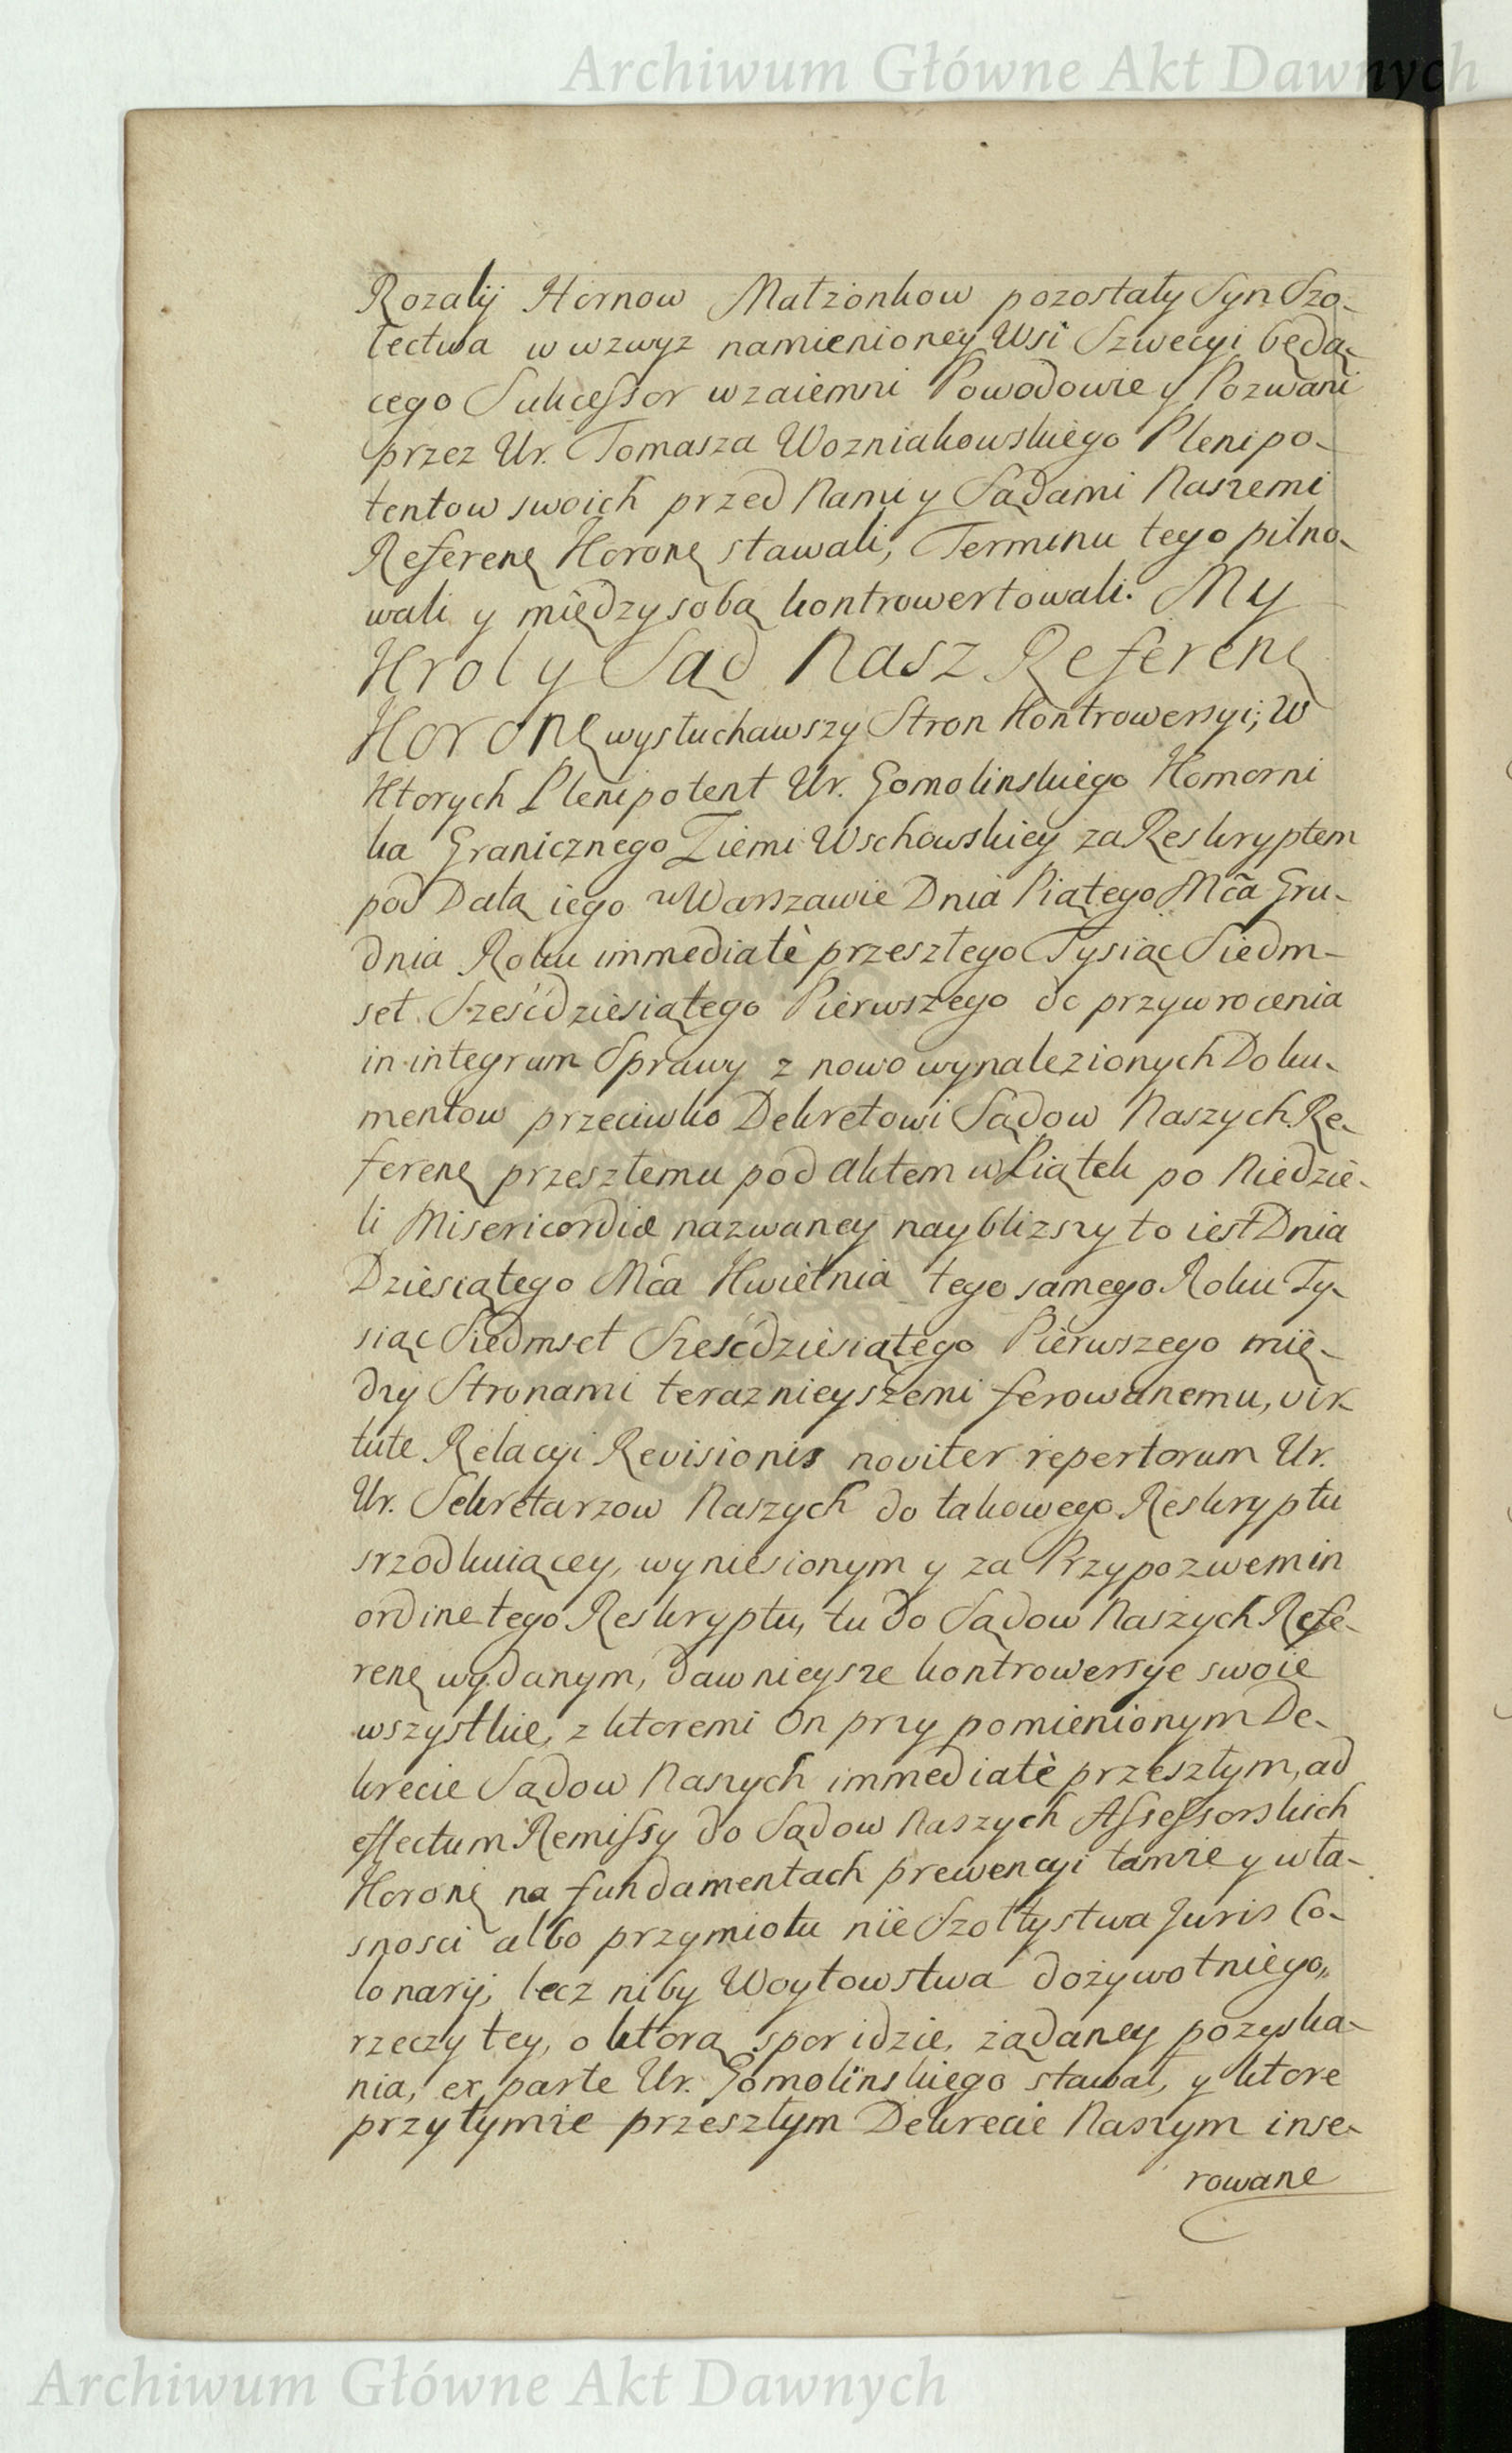 Archiwum Główne Akt Dawnych
Rozalij Hornow Małzonkow pozostały Syn Szo-
łectwa w wzwyz namienioney Wsi Szwecyi będą-
cego Sukcessor wzaiemni Powodowie y Pozwani
przez Ur. Tomasza Wozniakowskiego Plenipo-
tentow swoich przed Nami y Sądami Naszemi
Referenę Koronę stawali, Terminu tego pilno-
wali y między sobą kontrowertowali. My
Krol y Sąd Nasz Referenę
Koronę wysłuchawszy Stron Kontrowersyi; w
Ktorych Plenipotent Ur. Gomolinskiego Komorni
ka Granicznego Ziemi Wschowskiey za Reskryptem
pod Datą iego w Warszawie Dnia Piątego Mc̃a Gru-
dnia Roku immediatè przeszłego Tysiąc Siedm-
set Sześćdziesiątego Pierwszego do przywrocenia
in integrum Sprawy z nowo wynalezionych Doku-
mentow przeciwko Dekretowi Sądow Naszych Re-
ferenę przeszłemu pod aktem w Piątek po Niedzie-
li Misericordiæ nazwaney nayblizszy to iest Dnia
Dziesiątego Mc̃a Kwietnia tego samego Roku Ty-
siąc Siedmset Sześćdziesiątego Pierwszego mię-
dzy Stronami teraznieyszemi ferowanemu, vir-
tute Relacyi Revisionis noviter repertorum Ur.
Ur. Sekretarzow Naszych do takowego Reskryptu
srzodkuiącey, wyniesionym y za Przypozwem in
ordine tego Reskryptu, tu do Sądow Naszych Refe-
renę wydanym, dawnieysze kontrowersye swoie
wszystkie, z ktoremi On przy pomienionym De-
krecie Sądow Naszych immediatè przeszłym, ad
effectum Remissy do Sądow Naszych Assessorskich
Koronę na fundamentach prewencyi tamże y wła-
snosci albo przymiotu nie Szołtystwa Juris Co-
lonarij, lecz niby Woytowstwa dożywotniego,
rzeczy tey, o ktorą spor idzie, żądaney pozyska-
nia, ex parte Ur. Gomolinskiego stawał, y ktore
przy tymże przeszłym Dekrecie Naszym inse-
rowane
Archiwum Główne Akt Dawnych